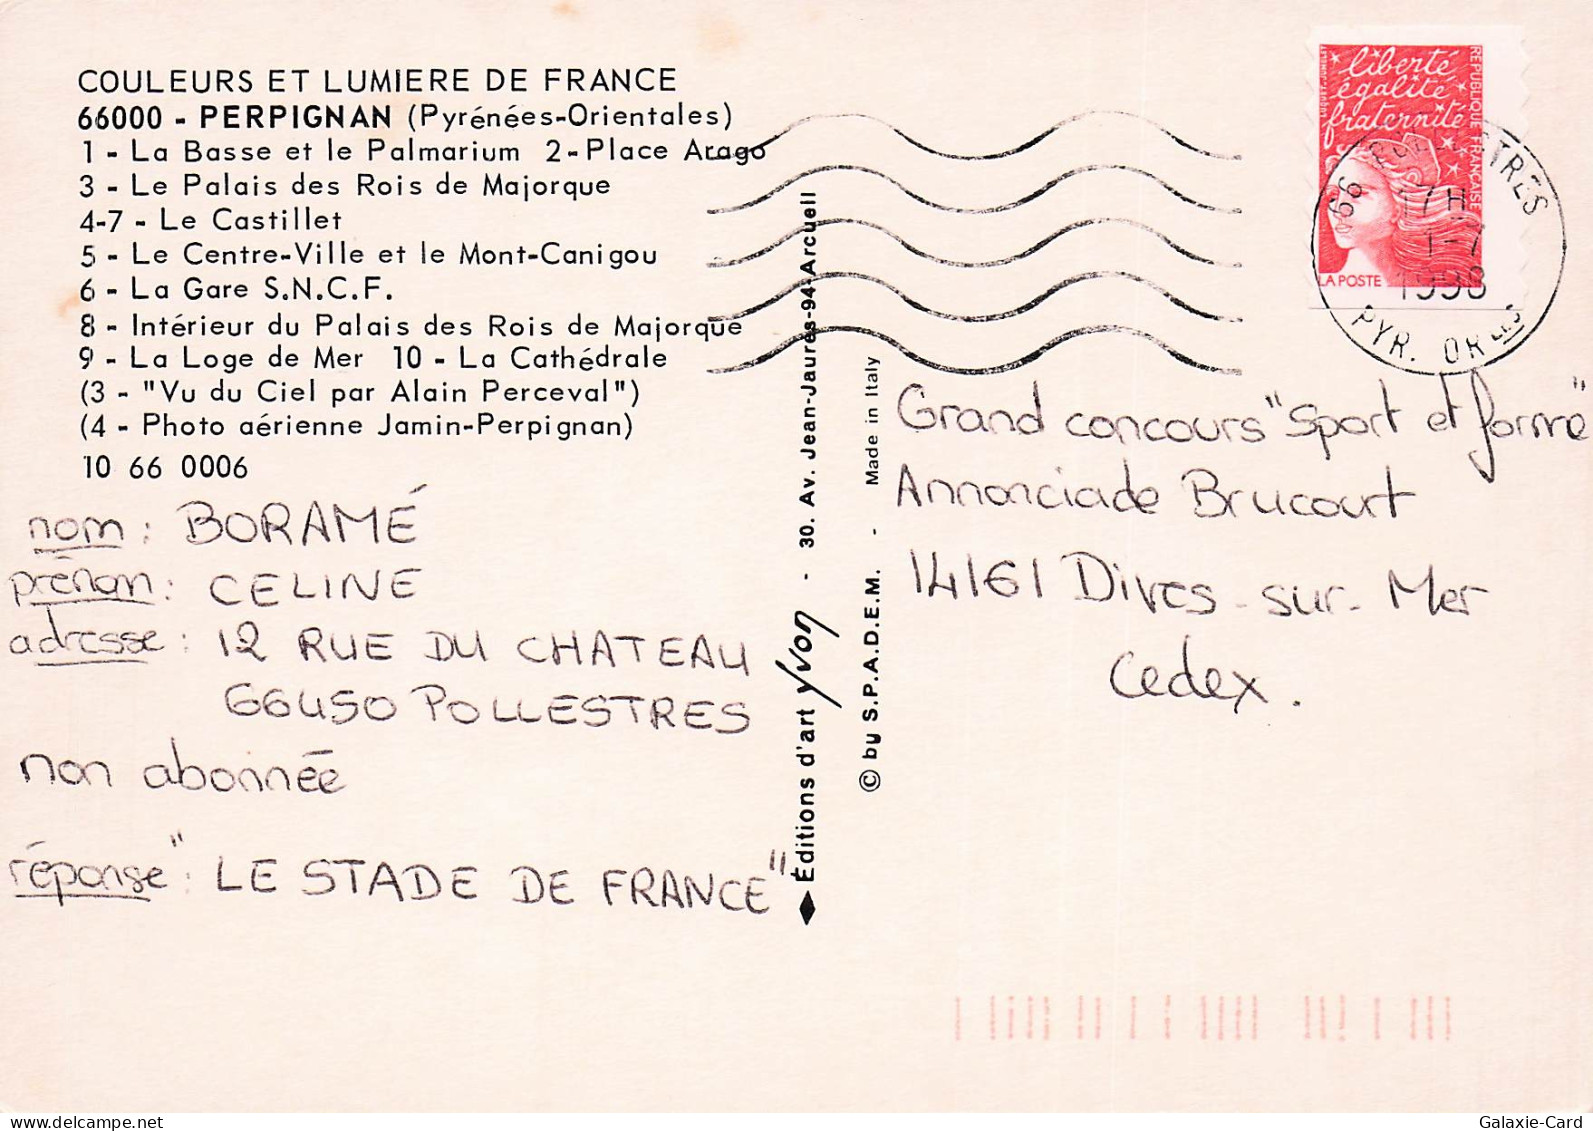 COULEURS ET LUMIERE DE FRANCE
66000 - PERPIGNAN (Pyrénées-Orientales)
1 - La Basse et le Palmarium 2 - Place Arago
3 - Le Palais des Rois de Majorque
4-7 - Le Castillet
5 - Le Centre-Ville et le Mont-Canigou
6 - La Gare S.N.C.F.
8 - Intérieur du Palais des Rois de Majorque
9 - La Loge de Mer 10 - La Cathédrale
(3 - "Vu du Ciel par Alain Perceval")
(4 - Photo aérienne Jamin-Perpignan)
10 66 0006
nom : BORAMÉ
prénom : CELINE
adresse : 12 RUE DU CHATEAU
66450 POLLESTRES
non abonnée
réponse : "LE STADE DE FRANCE"
Éditions d'art Yvon - 30. Av. Jean-Jaurès-94-Arcueil
© by S.P.A.D.E.M. - Made in Italy
liberté
égalité
fraternité
RÉPUBLIQUE FRANÇAISE
LA POSTE
66 POLLESTRES
17H
1-7
1998
PYR. ORLES
Grand concours "Sport et forme"
Annonciade Brucourt
14161 Dives-sur-Mer
Cedex.
Galaxie-Card